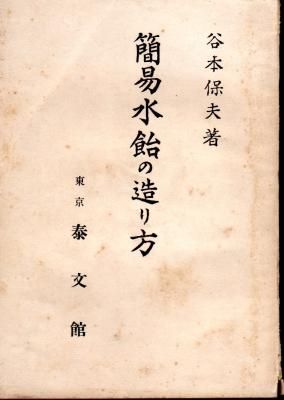 谷本保夫著
簡易水飴の造り方
東京
泰文館